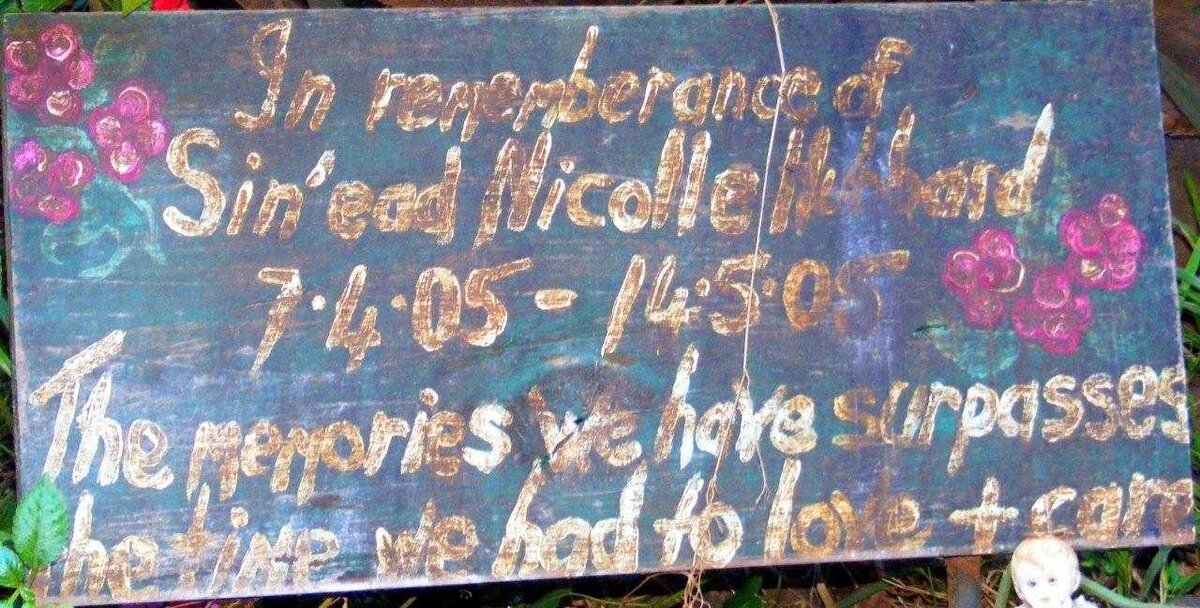 In remembrance of
Sin'ead Nicolle Hubbard
7.4.05 - 14.5.05
The memories we have surpasses
the time we had to love + care